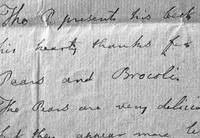 Tho R presents his best
his hearty thanks for
Pears and Brocoli
The Pears are very delicio
but they appear more li